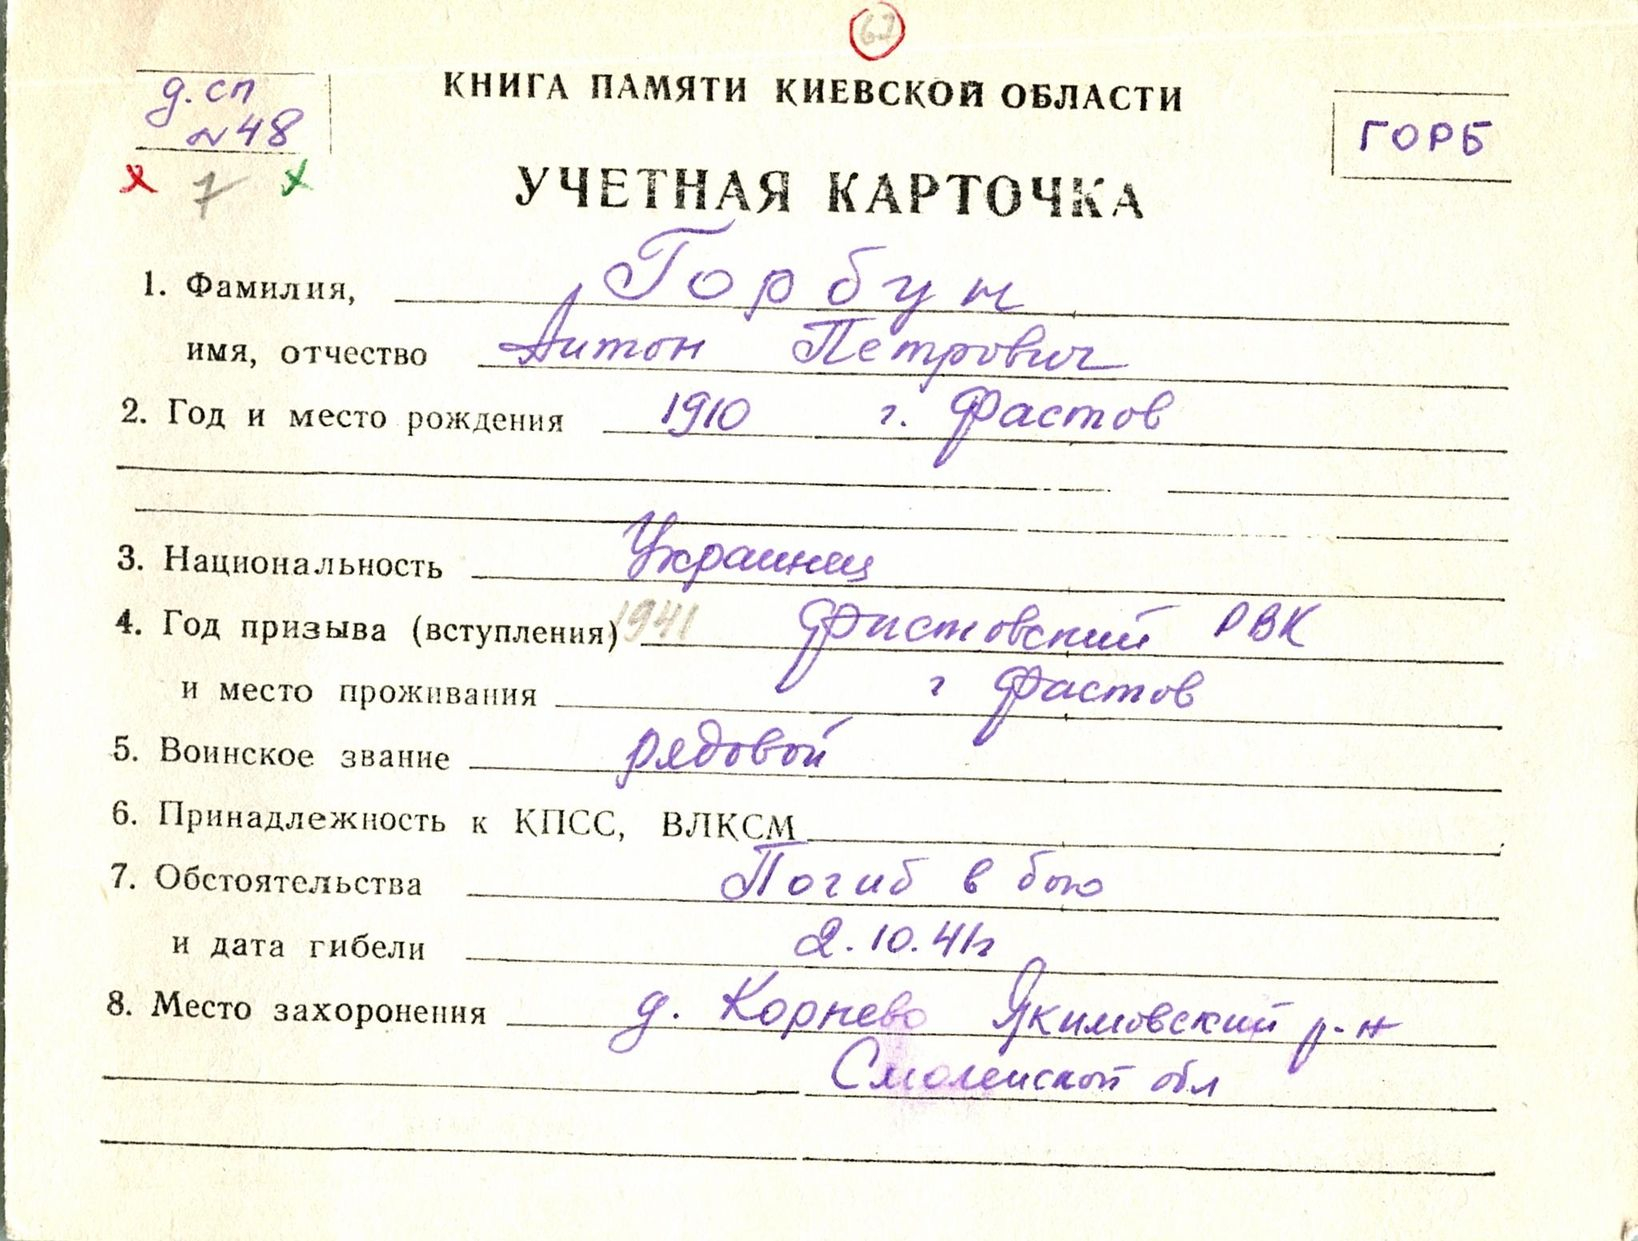 67
д. сп
№48
КНИГА ПАМЯТИ КИЕВСКОЙ ОБЛАСТИ
ГОРБ
х 7 х
УЧЕТНАЯ КАРТОЧКА
1. Фамилия, Горбун
имя, отчество Антон Петрович
2. Год и место рождения 1910 г. Фастов
3. Национальность Украинец
4. Год призыва (вступления) 1941 Фастовский РВК
и место проживания г Фастов
5. Воинское звание рядовой
6. Принадлежность к КПСС, ВЛКСМ
7. Обстоятельства Погиб в бою
и дата гибели 2.10.41г
8. Место захоронения д. Корнево Якимовский р-н
Смоленской обл